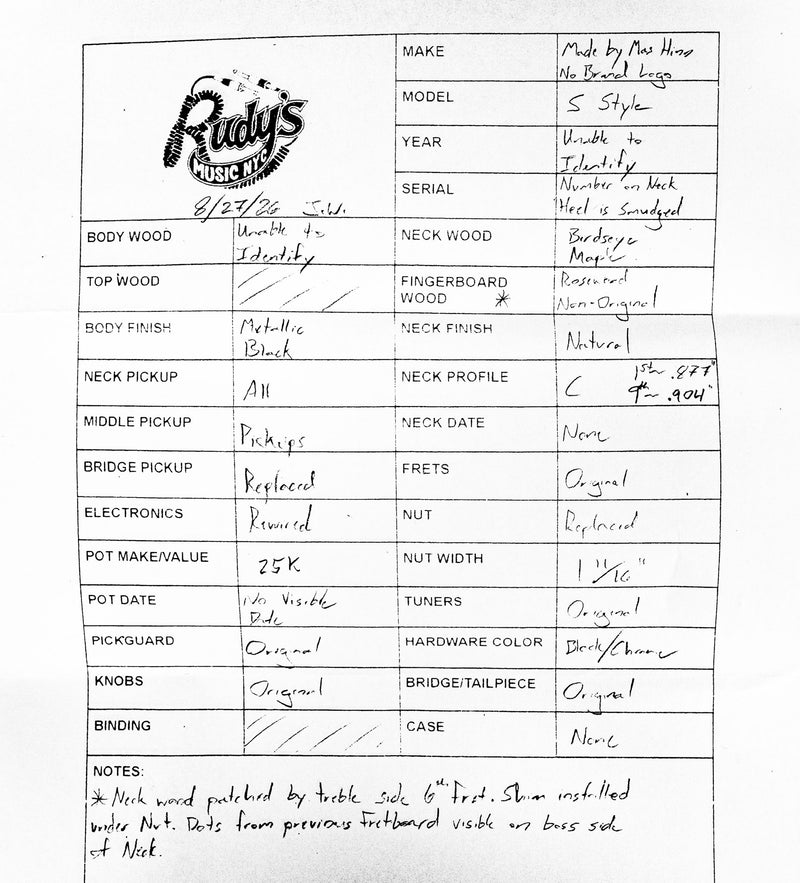 Rudy's
MUSIC NYC
8/27/26 J.W.
MAKE Made by Mas Hino
No Brand Logo
MODEL S Style
YEAR Unable to
Identify
SERIAL Number on Neck
Heel is Smudged
BODY WOOD Unable to
Identify
NECK WOOD Birdseye
Maple
TOP WOOD
FINGERBOARD
WOOD *
Rosewood
Non-Original
BODY FINISH Metallic
Black
NECK FINISH Natural
NECK PICKUP All
NECK PROFILE C 1st~ .877"
9th~ .904"
MIDDLE PICKUP Pickups
NECK DATE None
BRIDGE PICKUP Replaced
FRETS Original
ELECTRONICS Rewired
NUT Replaced
POT MAKE/VALUE 25K
NUT WIDTH 1 11/16"
POT DATE No Visible
Date
TUNERS Original
PICKGUARD Original
HARDWARE COLOR Black/Chrome
KNOBS Original
BRIDGE/TAILPIECE Original
BINDING
CASE None
NOTES:
* Neck wood patched by treble side 6th fret. Shim installed
under Nut. Dots from previous fretboard visible on bass side
of Neck.